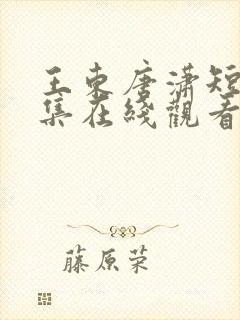 王東唐瀟短
集在綫觀看
藤原荣